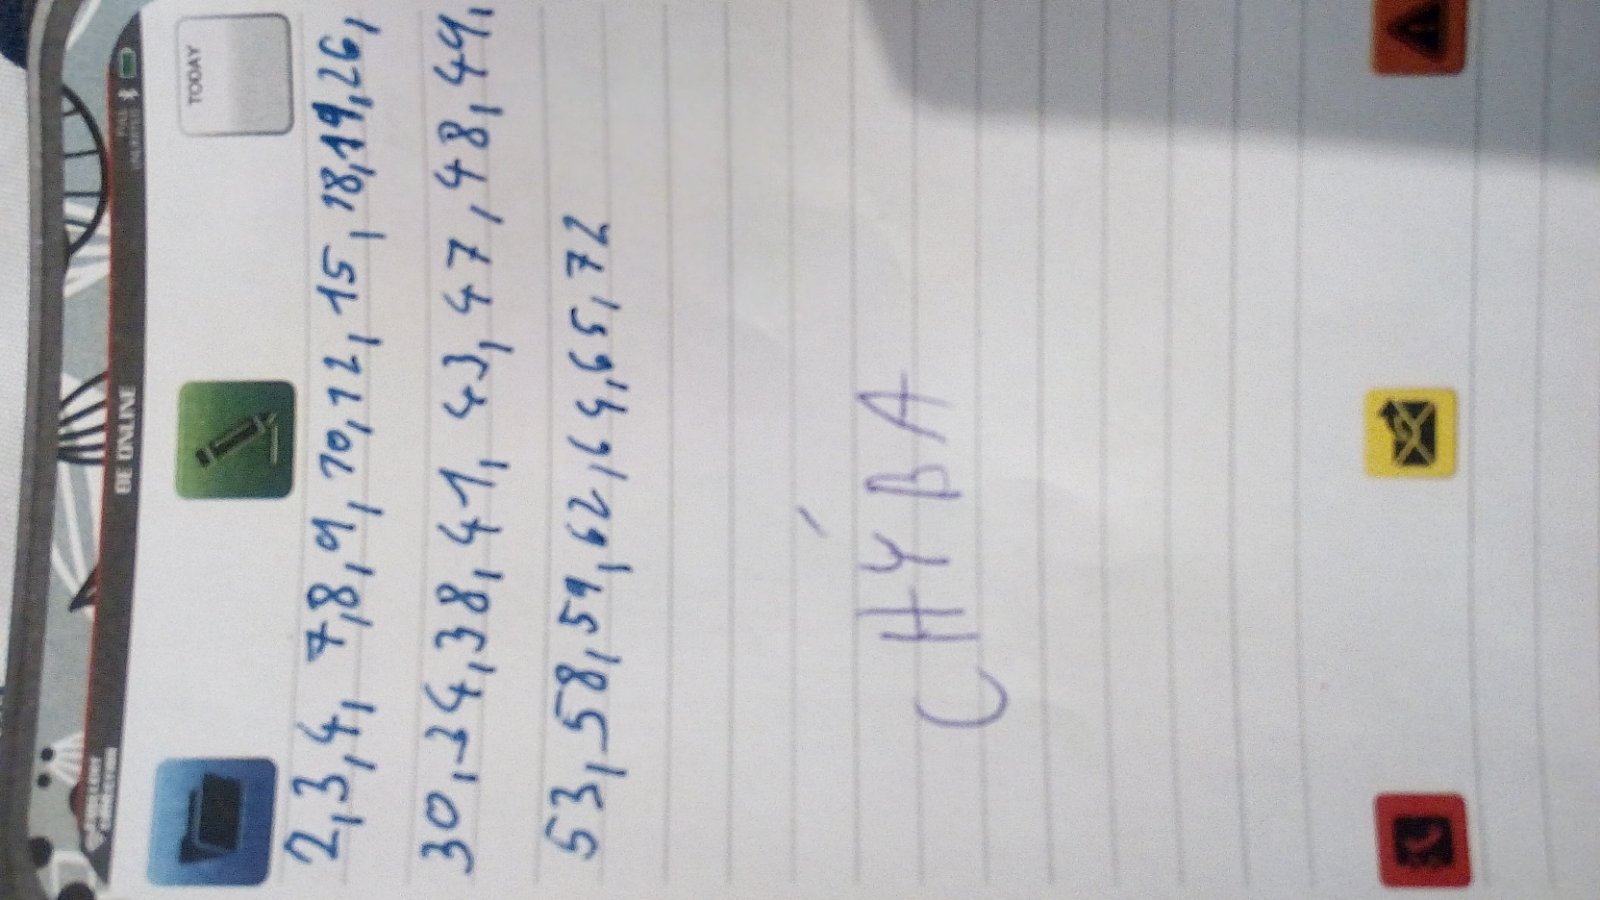 BE ONLINE
TODAY
2,3,4, 7,8,9,10,12,15,18,19,26,
30,34,38,41,43,47,48,49,
53,58,59,62,64,65,72
CHÝBA